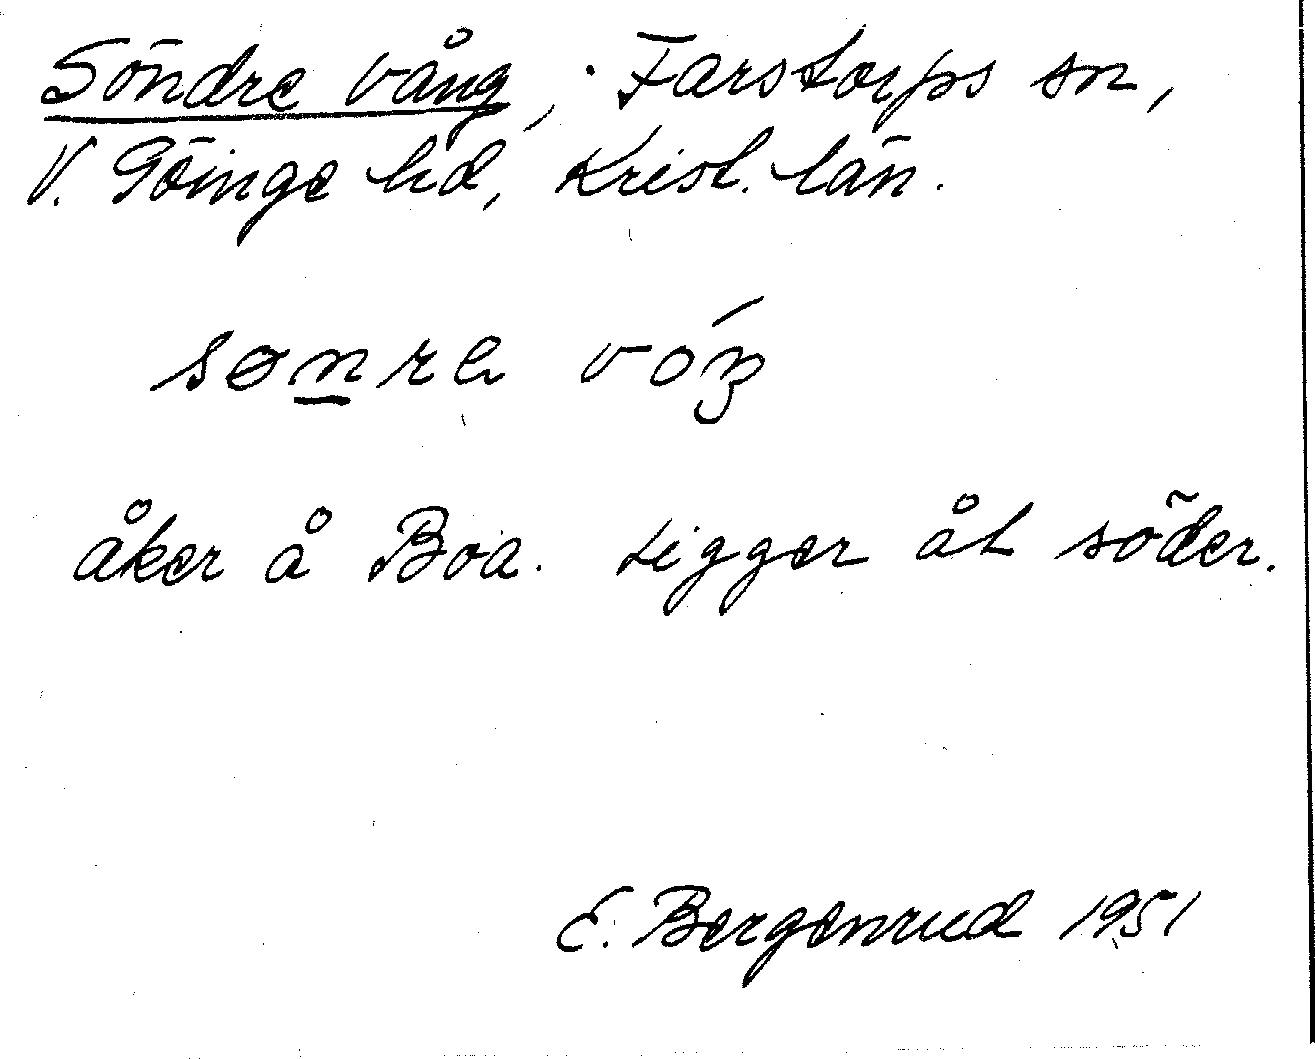 Söndre vång, Farstorps sn,
V. Göinge hd, Krist. län.
sønrə vóŋ
åker å Boa. Ligger åt söder.
E. Bergenrud 1951